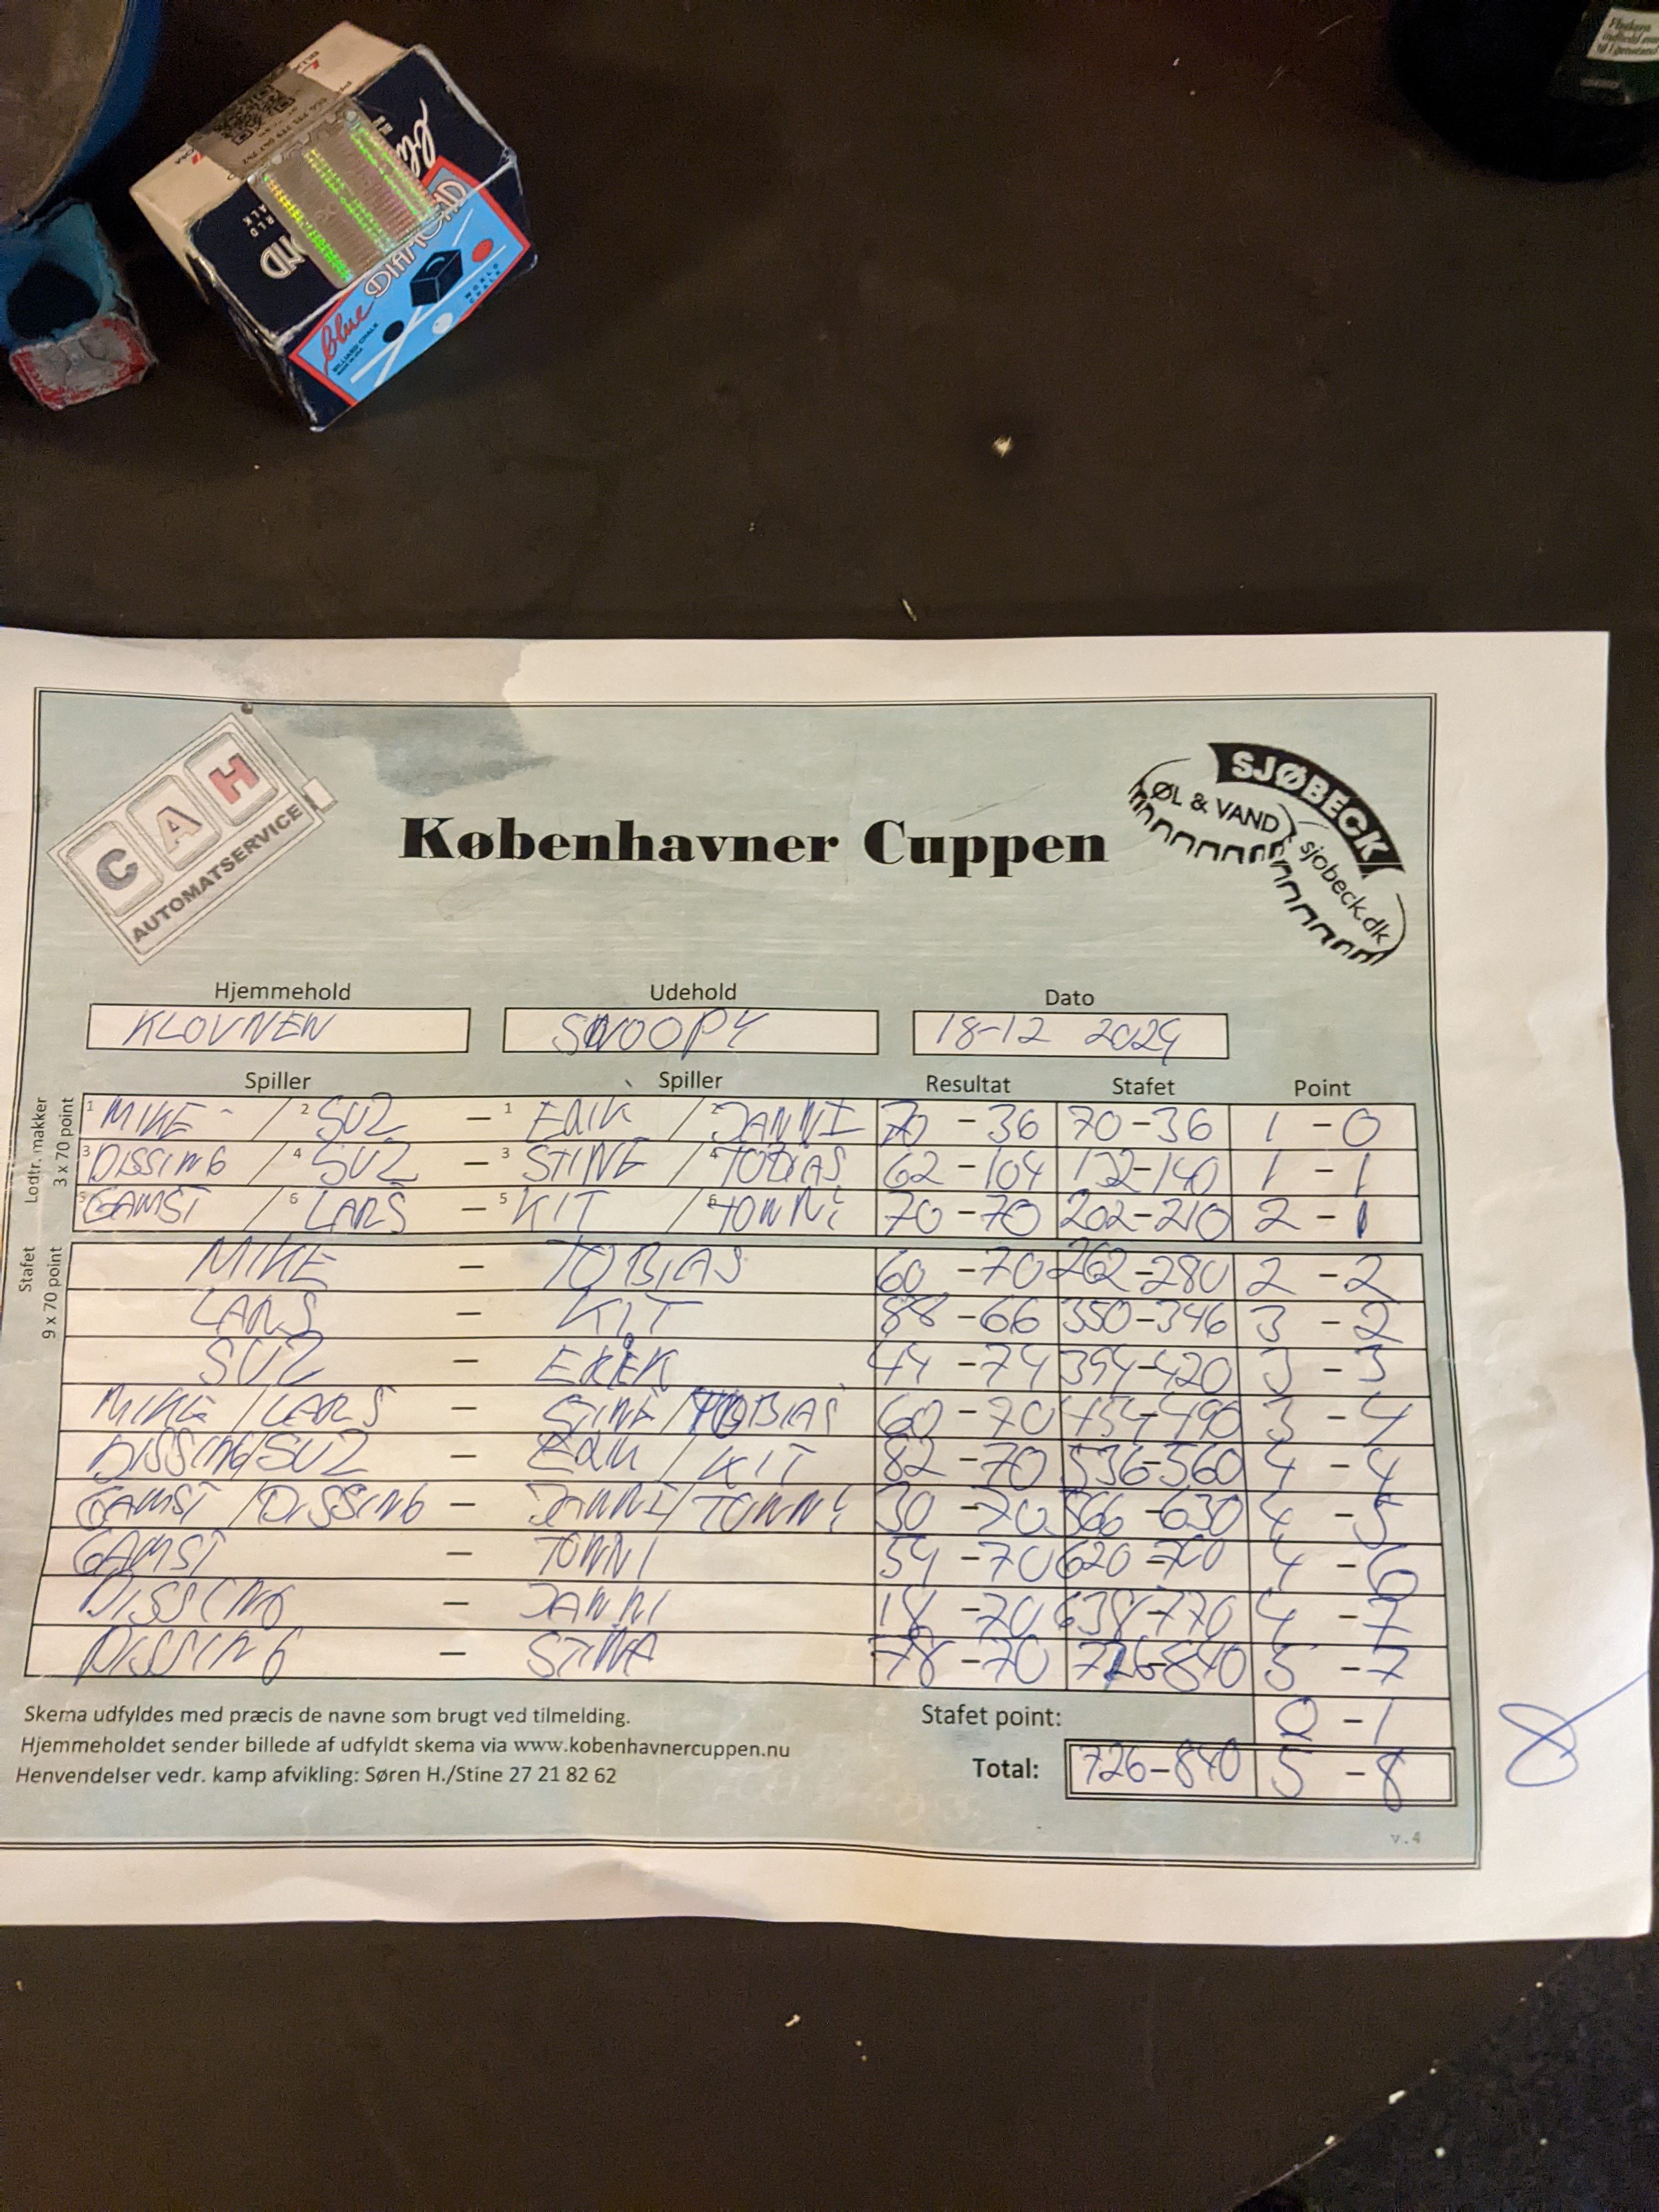 blue
DIAMOND
WORLD
CHALK
BILLIARD CHALK
MADE IN USA
Flasken
C A H
AUTOMATSERVICE
SJØBECK
ØL & VAND
sjobeck.dk
Københavner Cuppen
Hjemmehold Udehold Dato
KLOVNEN SNOOPY 18-12 2024
Spiller Spiller Resultat Stafet Point
Lodtr. maker
3 x 70 point
1 MIKE - / 2 SUZ - 1 ERIK / 2 JANNI 70 - 36 70-36 1 - 0
3 DISSING / 4 SUZ - 3 STINE / 4 TOBIAS 62 - 104 132-140 1 - 1
5 GAMST / 6 LARS - 5 KIT / 6 TONNI 70 - 70 202-210 2 - 1
Stafet
9 x 70 point
MIKE - TOBIAS 60 - 70 262-280 2 - 2
LARS - KIT 88 - 66 350-346 3 - 2
SUZ - ERIK 44 - 74 394-420 3 - 3
MIKE / LARS - STINE / TOBIAS 60 - 70 454-490 3 - 4
DISSING/SUZ - ERIK / KIT 82 - 70 536-560 4 - 4
GAMST / DISSING - JANNI / TONNI 30 - 70 566-630 4 - 5
GAMST - TONNI 54 - 70 620-700 4 - 6
DISSING - JANNI 18 - 70 638-770 4 - 7
DISSING - STINA 78 - 70 726-840 5 - 7
Skema udfyldes med præcis de navne som brugt ved tilmelding. Stafet point: 0 - 1
Hjemmeholdet sender billede af udfyldt skema via www.kobenhavnercuppen.nu
Henvendelser vedr. kamp afvikling: Søren H./Stine 27 21 82 62 Total: 726-840 5 - 8
8
v.4